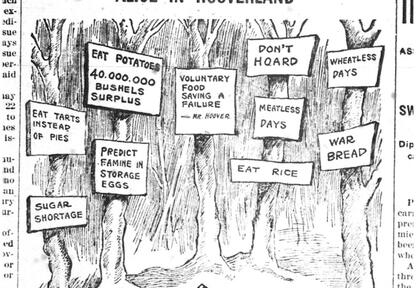 ALICE IN HOOVERLAND
EAT POTATOES
40.000.000
BUSHELS
SURPLUS
VOLUNTARY
FOOD
SAVING A
FAILURE
— MR. HOOVER.
DON'T
HOARD
WHEATLESS
DAYS
EAT TARTS
INSTEAD
OF PIES
MEATLESS
DAYS
PREDICT
FAMINE IN
STORAGE
EGGS
WAR
BREAD
EAT RICE
SUGAR
SHORTAGE